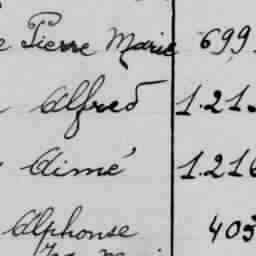 Pierre Marie 699
Alfred 1.213
Aimé 1.216
Alphonse 405